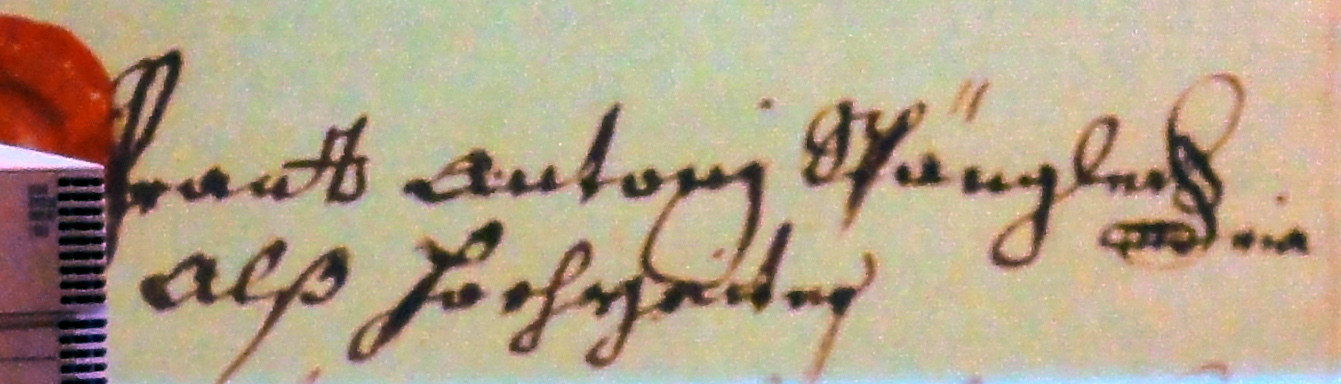 Frantz Antonj Spängler
mia
Alß Hochzeiter